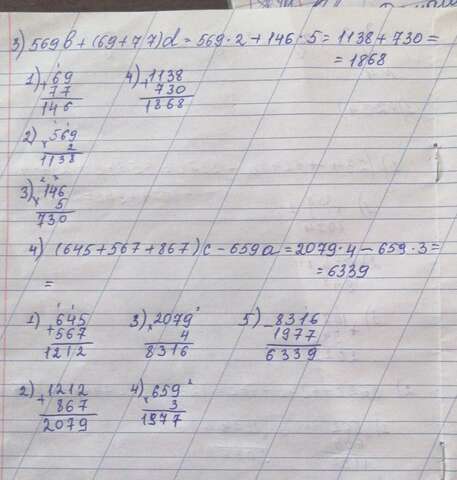 3) 569b + (69+77)d = 569·2 + 146·5 = 1138 + 730 =
= 1868
1) + 69
77
146
4) + 1138
730
1868
2) × 569
2
1138
3) × 146
5
730
4) (645+567+867)c - 659a = 2079·4 - 659·3 =
= 6339
=
1) + 645
567
1212
3) × 2079
4
8316
5) - 8316
1977
6339
2) + 1212
867
2079
4) × 659
3
1977